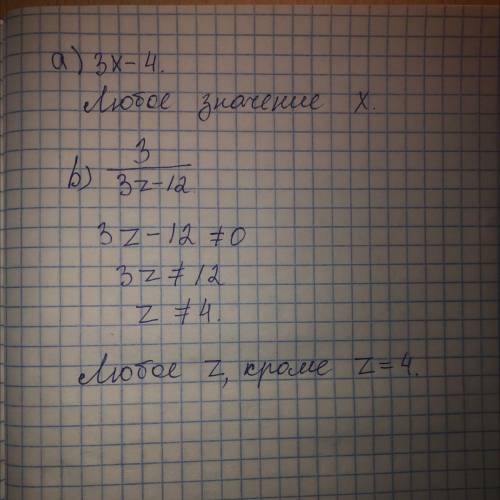 а) 3x-4.
Любое значение x.
b) 3/(3z-12)
3z-12≠0
3z≠12
z≠4.
Любое z, кроме z=4.